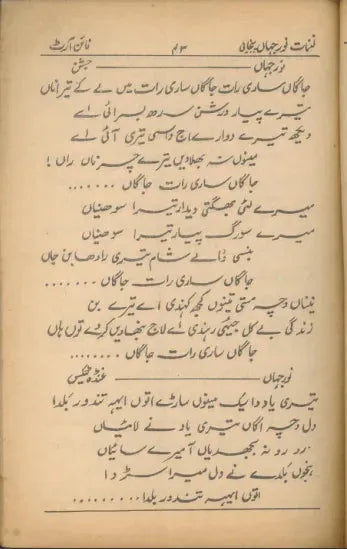 نغمات نور جہاں پنجابی ۳۴ فائن آرٹ
نور جہاں جشن
جاگاں ساری رات جاگاں ساری رات میں لے کے تیرا ناں
تیرے پیار درشن سدھ بسرائی اے
ویکھ تیرے دوارے اج داسی تیری آئی اے
مینوں نہ بھلا دیں تیرے چرناں راں!
جاگاں ساری رات جاگاں .......
میرے لئی بھگتی دیدار تیرا سوھنیاں
میرے سورگ پیار تیرا سوھنیاں
بنسی والے شام تیری رادھا بن جاں
جاگاں ساری رات جاگاں .......
نیناں وچہ مستی تینوں کجھ کہندی اے تیرے بن
زندگی بے کل جیئی رہندی اے لاج نبھا دیں توں ہاں
جاگاں ساری رات جاگاں ........
نور جہاں غنڈہ ٹیکس
تیری یاد دا سیک مینوں ساڑے اتوں ایہہ تندور بلدا
دل وچہ اگاں تیری یاد نے لائیاں
رو رو نہ بجھدیاں آ میرے سائیاں
ہنجوں بلدے نے دل میرا سڑدا
اتوں ایہہ تندور بلدا .........